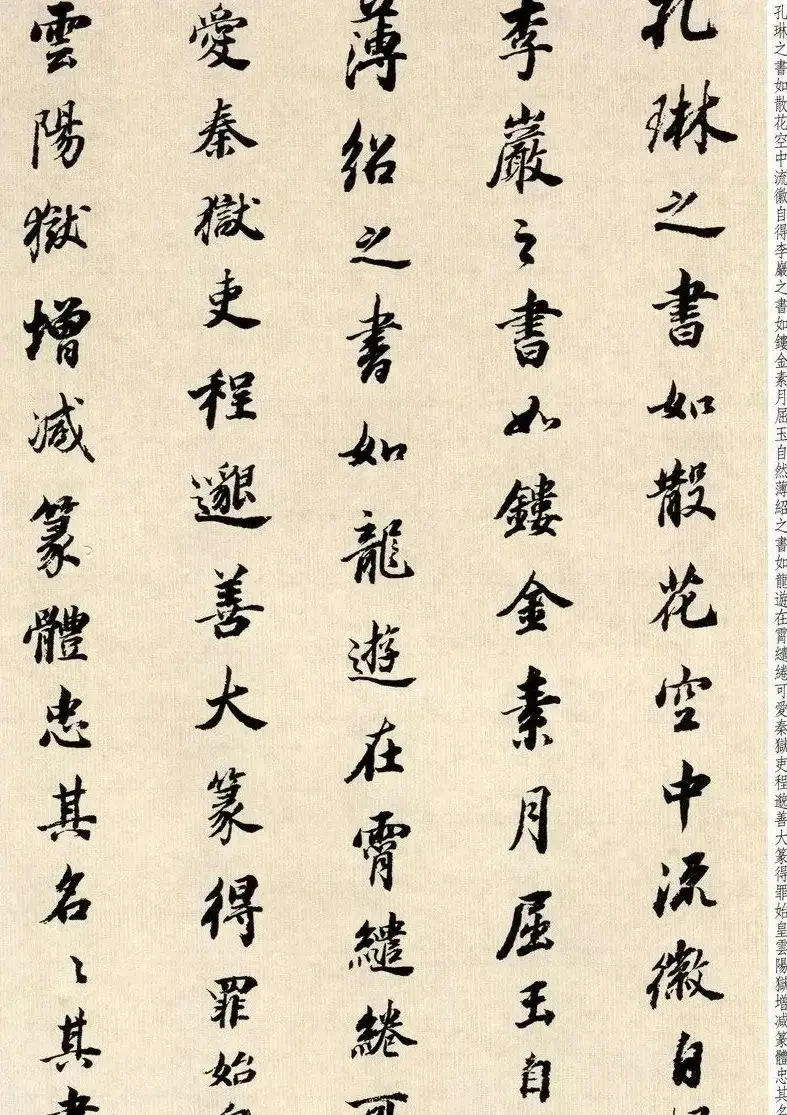 孔琳之書如散花空中流徽自得李巖之書如鏤金素月屈玉自然薄紹之書如龍遊在霄繾綣可愛秦獄吏程邈善大篆得罪始皇雲陽獄增减篆體忠其名
孔琳之書如散花空中流徽自得
李巖之書如鏤金素月屈玉自
薄紹之書如龍遊在霄繾綣可
愛秦獄吏程邈善大篆得罪始皇
雲陽獄增減篆體忠其名〻其書